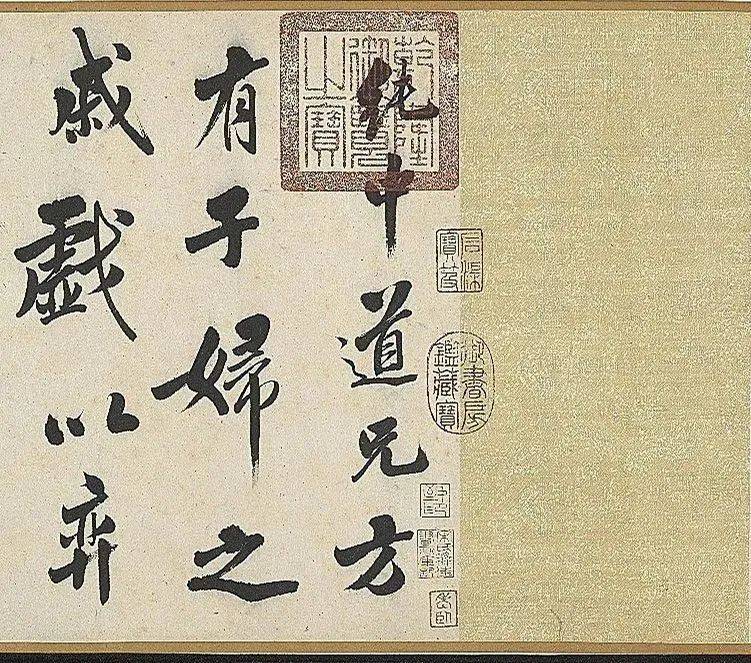 純中道兄方
有子婦之
戚戲以弈
乾隆御覽之寶
石渠寶笈
御書房鑑藏寶